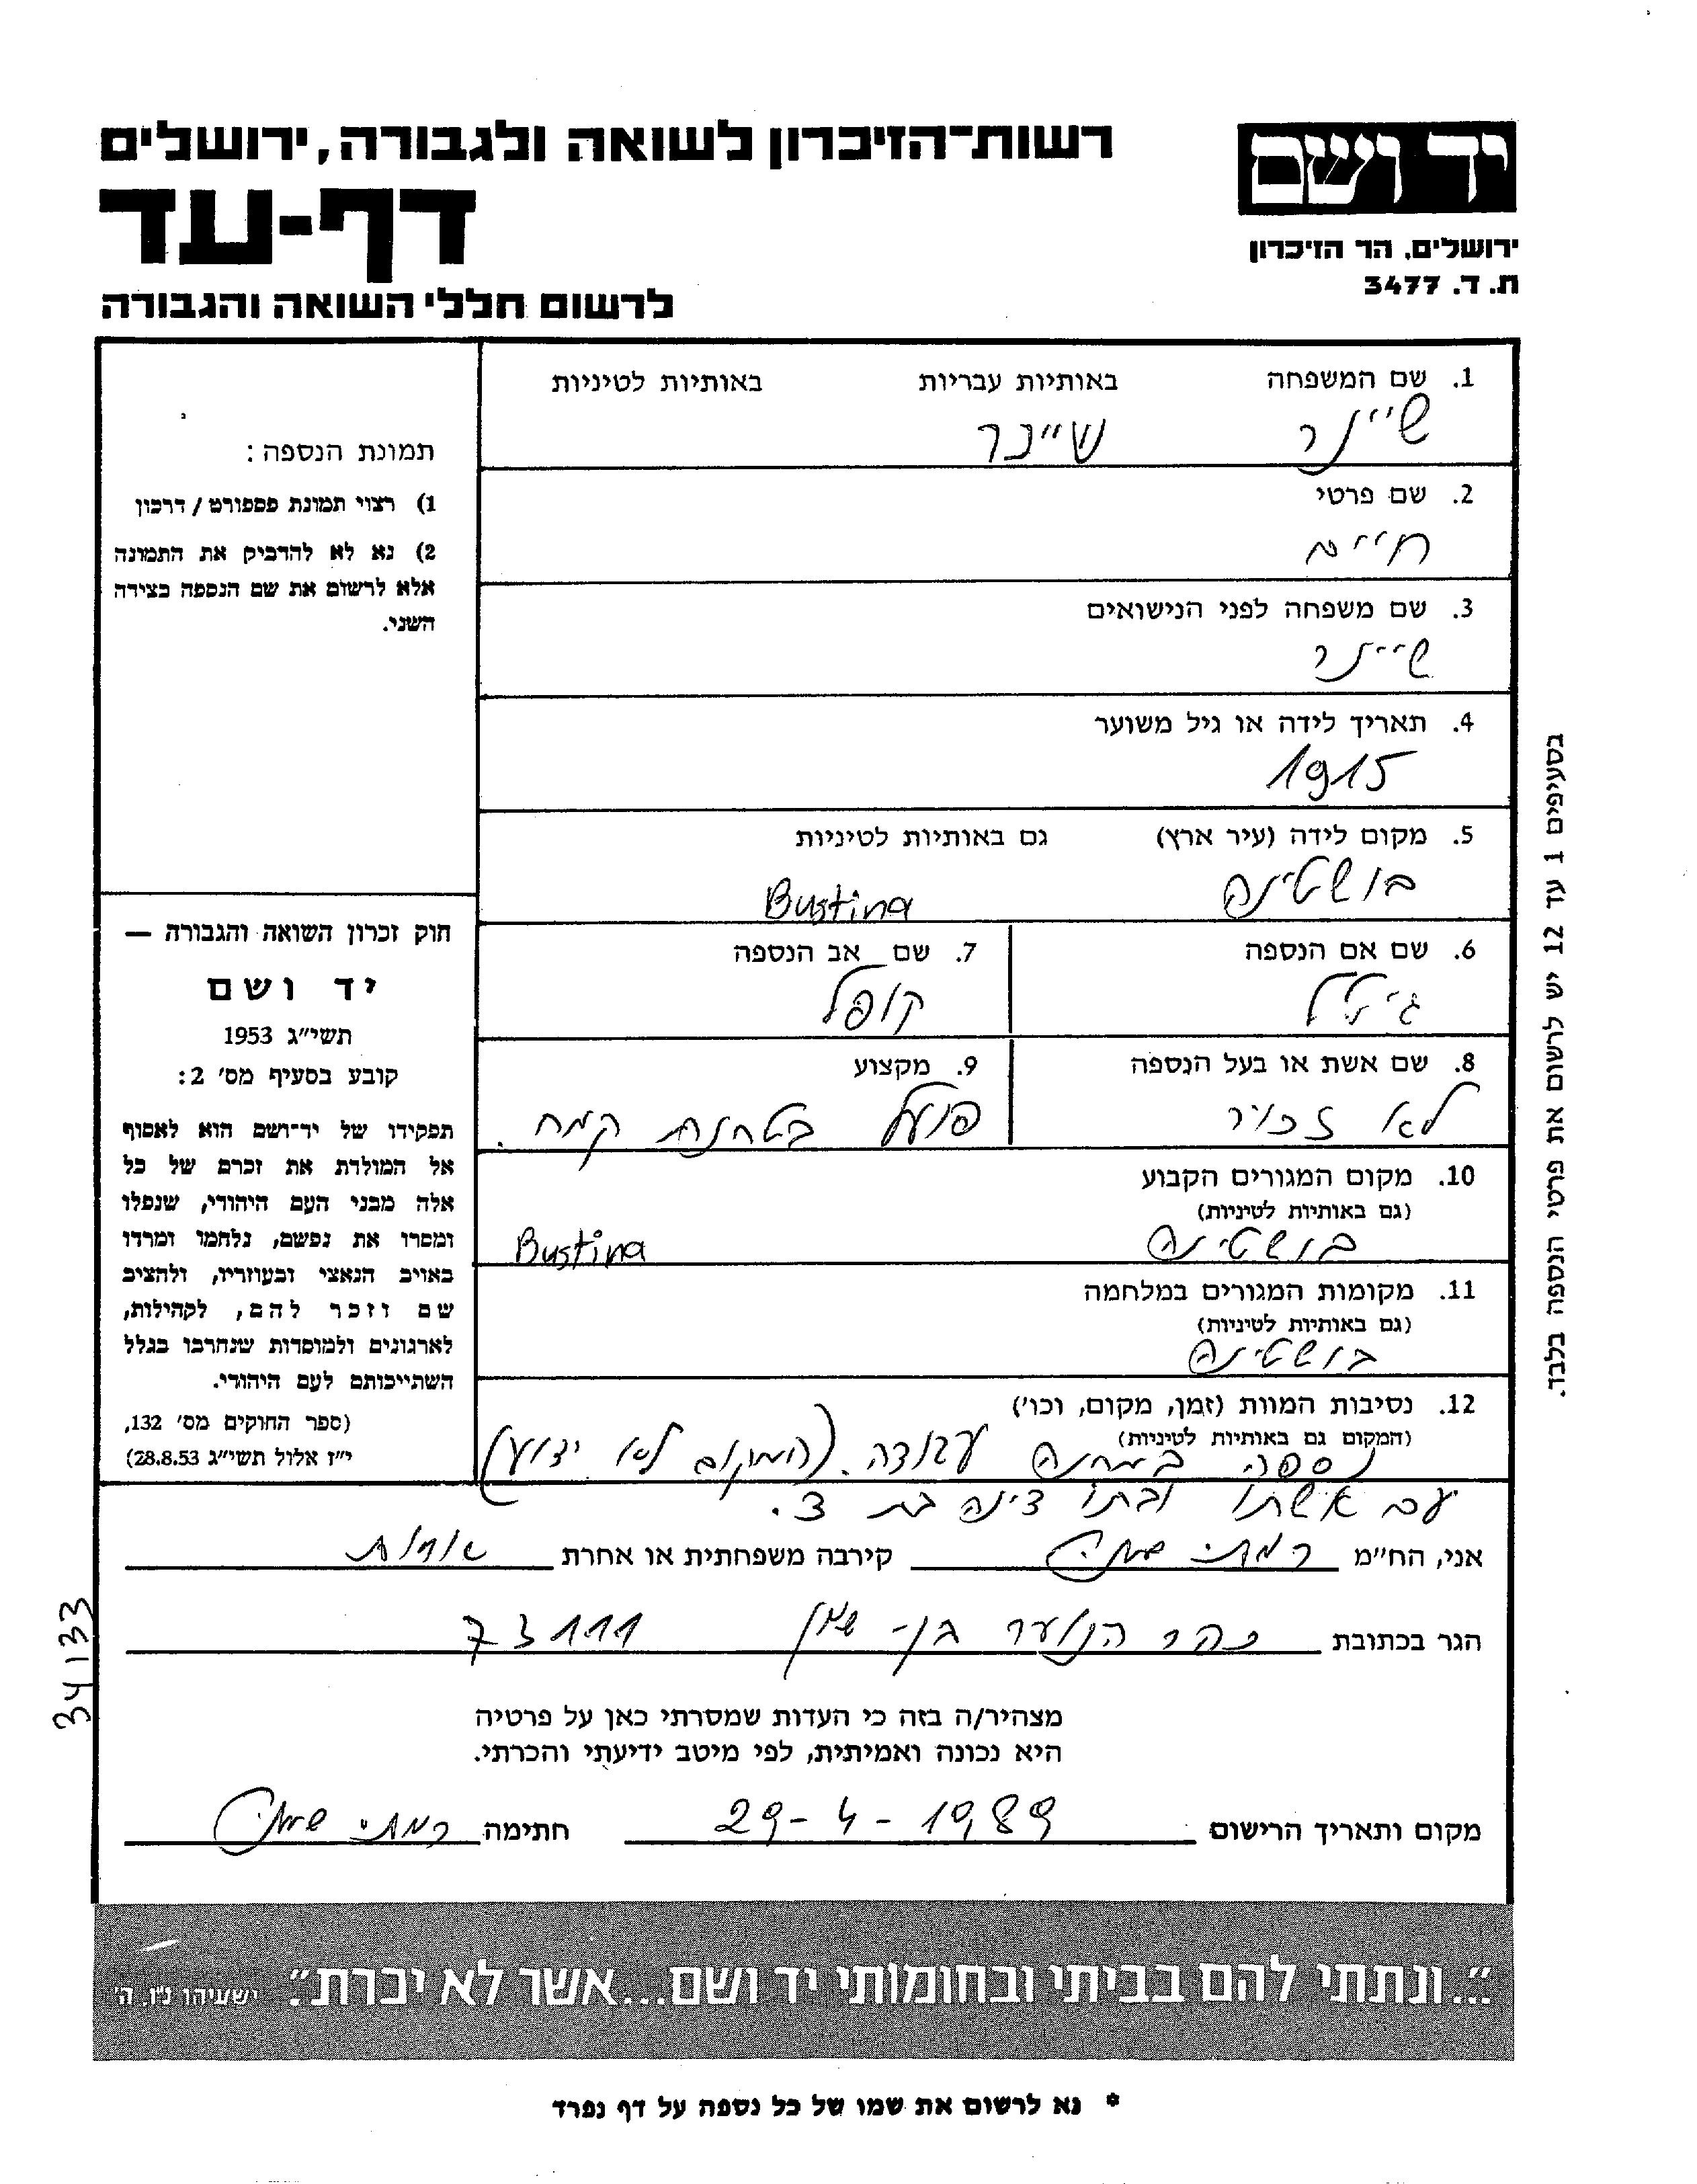 רשות־הזיכרון לשואה ולגבורה, ירושלים
דף-עד
לרשום חללי השואה והגבורה
יד ושם
ירושלים, הר הזיכרון
ת.ד. 3477
תמונת הנספה:
1) רצוי תמונת פספורט / דרכון
2) נא לא להדביק את התמונה
אלא לרשום את שם הנספה בצידה
השני.
חוק זכרון השואה והגבורה —
יד ושם
תשי״ג 1953
קובע בסעיף מס׳ 2:
תפקידו של יד־ושם הוא לאסוף
אל המולדת את זכרם של כל
אלה מבני העם היהודי, שנפלו
ומסרו את נפשם, נלחמו ומרדו
באויב הנאצי ובעוזריו, ולהציב
שם וזכר להם, לקהילות,
לארגונים ולמוסדות שנחרבו בגלל
השתייכותם לעם היהודי.
(ספר החוקים מס׳ 132,
י״ז אלול תשי״ג 28.8.53)
1. שם המשפחה באותיות עבריות באותיות לטיניות
שיינר שיינר
2. שם פרטי
חיים
3. שם משפחה לפני הנישואים
שיינר
4. תאריך לידה או גיל משוער
1915
5. מקום לידה (עיר ארץ) גם באותיות לטיניות
בושטינה Bustina
6. שם אם הנספה 7. שם אב הנספה
גיטל קופל
8. שם אשת או בעל הנספה 9. מקצוע
לא זכור פועל בטחנת קמח.
10. מקום המגורים הקבוע
(גם באותיות לטיניות)
בושטינה Bustina
11. מקומות המגורים במלחמה
(גם באותיות לטיניות)
בושטינה
12. נסיבות המוות (זמן, מקום, וכו׳)
(המקום גם באותיות לטיניות)
נספה במחנה עבודה. (המקום לא ידוע)
עם אשתו ובתו דינה בת 3.
בסעיפים 1 עד 12 יש לרשום את פרטי הנספה בלבד.
אני, הח״מ רמתי קירבה משפחתית או אחרת אחות
הגר בכתובת כפר הנוער בן- שמן 73111
34133
מצהיר/ה בזה כי העדות שמסרתי כאן על פרטיה
היא נכונה ואמיתית, לפי מיטב ידיעתי והכרתי.
מקום ותאריך הרישום 29-4-1989 חתימה רמתי
״...ונתתי להם בביתי ובחומותי יד ושם...אשר לא יכרת״. ישעיהו נ״ו, ה׳
* נא לרשום את שמו של כל נספה על דף נפרד